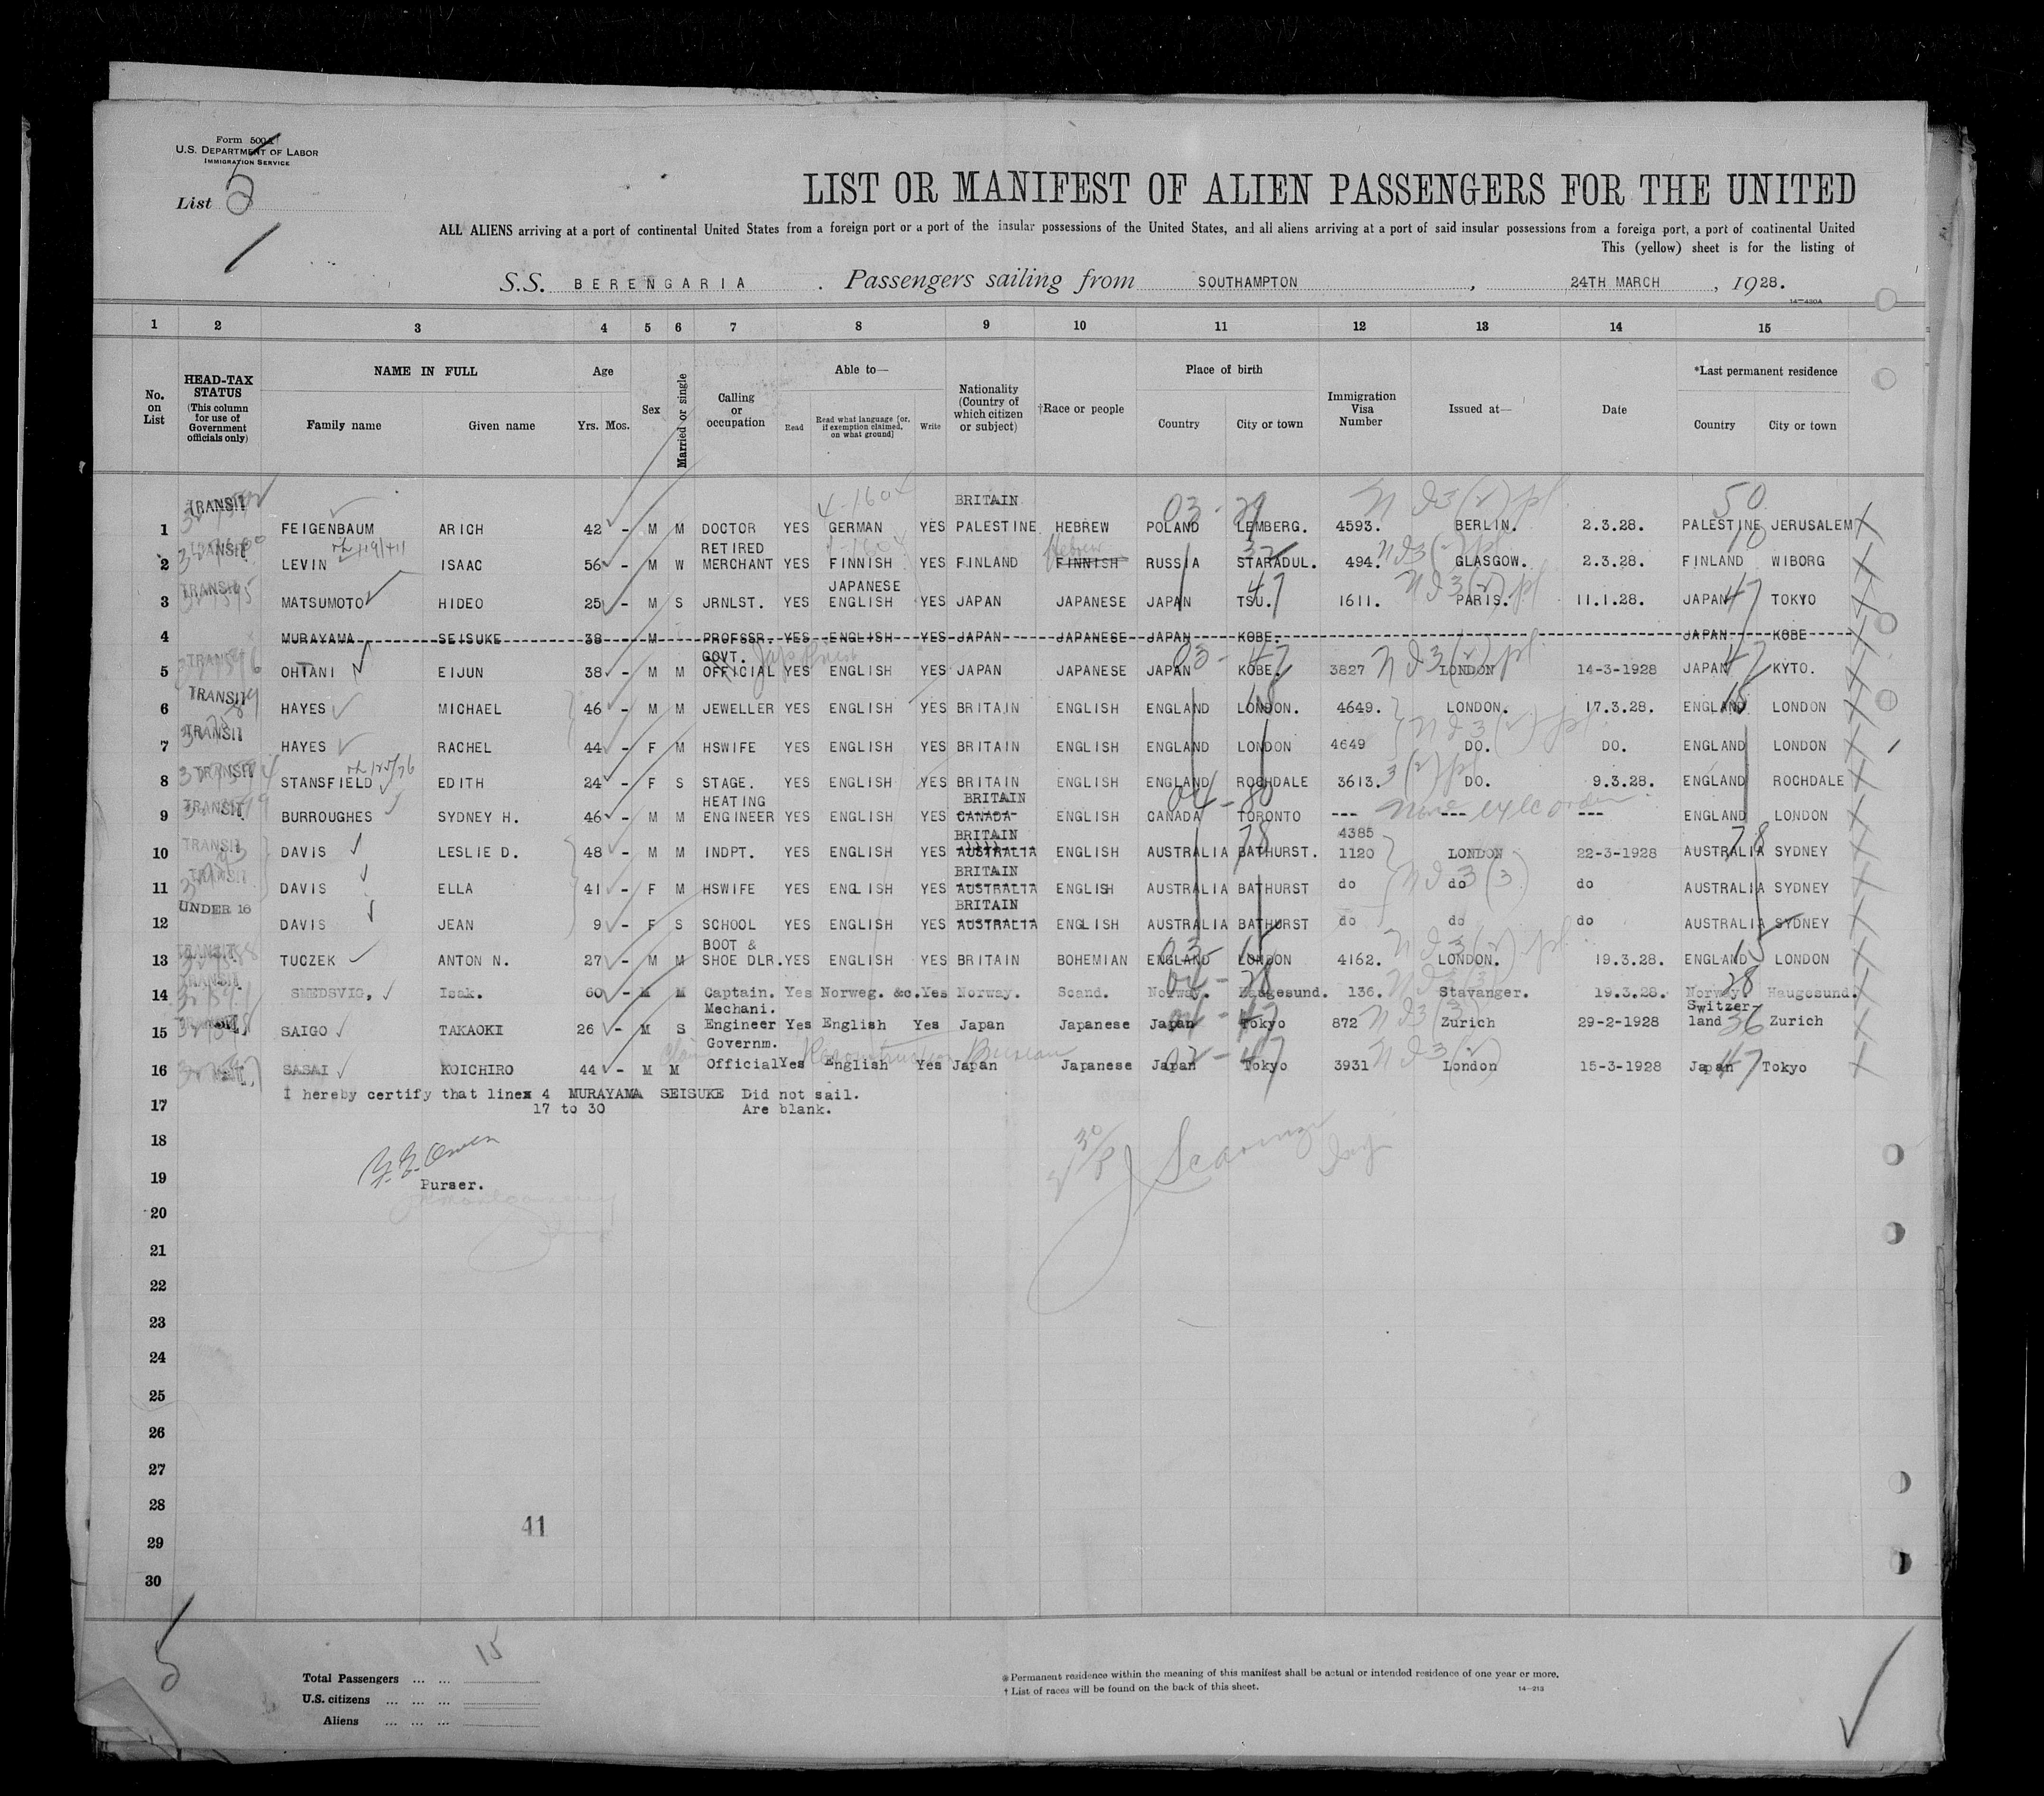 Form 500A
U.S. DEPARTMENT OF LABOR
IMMIGRATION SERVICE
List 5
LIST OR MANIFEST OF ALIEN PASSENGERS FOR THE UNITED
ALL ALIENS arriving at a port of continental United States from a foreign port or a port of the insular possessions of the United States, and all aliens arriving at a port of said insular possessions from a foreign port, a port of continental United
This (yellow) sheet is for the listing of
S.S. BERENGARIA . Passengers sailing from SOUTHAMPTON , 24TH MARCH , 1928.
14-430A
1 2 3 4 5 6 7 8 9 10 11 12 13 14 15
No. on List
HEAD-TAX STATUS (This column for use of Government officials only)
NAME IN FULL
Family name Given name
Age
Yrs. Mos.
Sex
Married or single
Calling or occupation
Able to—
Read
Read what language [or, if exemption claimed, on what ground]
Write
Nationality (Country of which citizen or subject)
†Race or people
Place of birth
Country City or town
Immigration Visa Number
Issued at—
Date
*Last permanent residence
Country City or town
TRANSIT 4-1604 BRITAIN 03-29 50
1 FEIGENBAUM ARICH 42 - M M DOCTOR YES GERMAN YES PALESTINE HEBREW POLAND LEMBERG. 4593. BERLIN. 2.3.28. PALESTINE JERUSALEM
TRANSIT RETIRED Hebrew
2 LEVIN ISAAC 56 - M W MERCHANT YES FINNISH YES FINLAND FINNISH RUSSIA STARADUL. 494. GLASGOW. 2.3.28. FINLAND WIBORG
TRANSIT JAPANESE 47
3 MATSUMOTO HIDEO 25 - M S JRNLST. YES ENGLISH YES JAPAN JAPANESE JAPAN TSU. 1611. PARIS. 11.1.28. JAPAN TOKYO
4 MURAYAMA SEISUKE 38 - M PROFSSR. YES ENGLISH YES JAPAN JAPANESE JAPAN KOBE. JAPAN KOBE
TRANSIT GOVT. 03-47
5 OHTANI EIJUN 38 - M M OFFICIAL YES ENGLISH YES JAPAN JAPANESE JAPAN KOBE. 3827 LONDON 14-3-1928 JAPAN KYTO.
TRANSIT
6 HAYES MICHAEL 46 - M M JEWELLER YES ENGLISH YES BRITAIN ENGLISH ENGLAND LONDON. 4649. LONDON. 17.3.28. ENGLAND LONDON
TRANSIT
7 HAYES RACHEL 44 - F M HSWIFE YES ENGLISH YES BRITAIN ENGLISH ENGLAND LONDON 4649 DO. DO. ENGLAND LONDON
TRANSIT
8 STANSFIELD EDITH 24 - F S STAGE. YES ENGLISH YES BRITAIN ENGLISH ENGLAND ROCHDALE 3613. DO. 9.3.28. ENGLAND ROCHDALE
TRANSIT HEATING BRITAIN
9 BURROUGHES SYDNEY H. 46 - M M ENGINEER YES ENGLISH YES CANADA ENGLISH CANADA TORONTO --- --- --- ENGLAND LONDON
TRANSIT BRITAIN 4385 78
10 DAVIS LESLIE D. 48 - M M INDPT. YES ENGLISH YES AUSTRALIA ENGLISH AUSTRALIA BATHURST. 1120 LONDON 22-3-1928 AUSTRALIA SYDNEY
TRANSIT BRITAIN
11 DAVIS ELLA 41 - F M HSWIFE YES ENGLISH YES AUSTRALIA ENGLISH AUSTRALIA BATHURST do do do AUSTRALIA SYDNEY
UNDER 16 BRITAIN
12 DAVIS JEAN 9 - F S SCHOOL YES ENGLISH YES AUSTRALIA ENGLISH AUSTRALIA BATHURST do do do AUSTRALIA SYDNEY
TRANSIT BOOT &
13 TUCZEK ANTON N. 27 - M M SHOE DLR. YES ENGLISH YES BRITAIN BOHEMIAN ENGLAND LONDON 4162. LONDON. 19.3.28. ENGLAND LONDON
TRANSIT 04-28 28
14 SMEDSVIG, Isak. 60 - M M Captain. Yes Norweg. &c. Yes Norway. Scand. Norway. Haugesund. 136. Stavanger. 19.3.28. Norway. Haugesund.
Mechani. Switzer-
15 SAIGO TAKAOKI 26 - M S Engineer Yes English Yes Japan Japanese Japan Tokyo 872 Zurich 29-2-1928 land Zurich
Governm. Reconstruction Bureau
16 SASAI KOICHIRO 44 - M M Official Yes English Yes Japan Japanese Japan Tokyo 3931 London 15-3-1928 Japan Tokyo
I hereby certify that lines 4 MURAYAMA SEISUKE Did not sail.
17 17 to 30 Are blank.
18
19 Purser.
20
21
22
23
24
25
26
27
28
41
29
30
5
Total Passengers ... ... 15
U.S. citizens ... ... ...
Aliens ... ... ...
*Permanent residence within the meaning of this manifest shall be actual or intended residence of one year or more.
† List of races will be found on the back of this sheet.
14-213